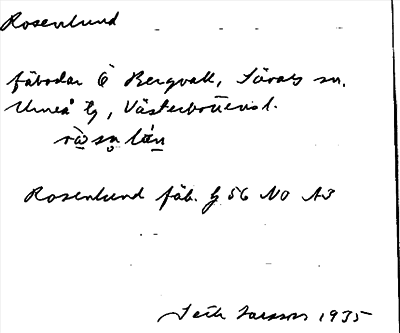 Rosenlund
fäbodar Ö Bergvall, Sävars sn.
Umeå tg, Västerbottens l.
Rosenlund fäb. g 56 NO A3
Seth Larsson 1935